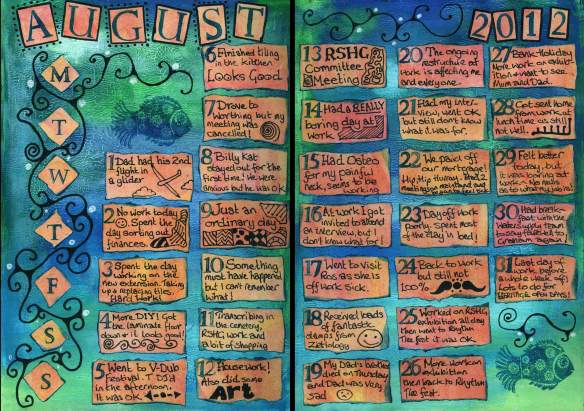 AUGUST
2012
M
T
W
T
F
S
S
1 Dad had his 2nd
flight in
a glider
2 No work today
Spent the
day sorting out
finances.
3 Spent the day
working on the
new extension. Taking
up & replacing tiles.
Hard Work!
4 More D.I.Y! Got
the laminate floor
down it looks good!
5 Went to V-Dub
Festival. T DJ'd
in the afternoon.
It was OK
6 Finished tiling
in the kitchen
Looks Good
7 Drove to
Worthing but my
meeting was
cancelled!
8 Billy Kat
stayed out for the
first time! We were
anxious but he was OK
9 Just an
ordinary day
10 Something
must have happened
but I can't remember
what!
11 Transcribing in
the cemetery,
RSHG work and
a bit of shopping
12 Housework!
Also did some
Art
13 RSHG
Committee
Meeting
14 Had a REALLY
boring day at
work
15 Had Osteo
for my painful
neck, seems to be
working
16 At work I got
invited to attend
an interview, but I
don't know what for!
17 Went to visit
Ros as she is
off work sick.
18 Received loads
of fantastic
stamps from
Zettiology
19 My Dad's brother
died on Thursday
and Dad was very
sad
20 The ongoing
restructure at
work is affecting me
and everyone
21 Had my inter-
view, went OK
but still don't know
what it was for.
22 We paid off
our mortgage!
23 Day off work
poorly. Spent most
of the day in bed!
24 Back to work
but still not
100%
25 Worked on RSHG
exhibition all day
then went to Rhythm
Tree fest it was OK
26 More work on
exhibition
then back to Rhythm
Tree fest.
27 Bank Holiday
More work on exhib-
ition & went to see
Mum and Dad.
28 Got sent home
from work at
lunch time as still
not well.
29 Felt better
today, but it
was boring at
work. No mails
as to what my job is!
30 Had break-
fast with the
Waterside team
Gresham again!
31 Last day of
work before
a week off!
Lots to do for